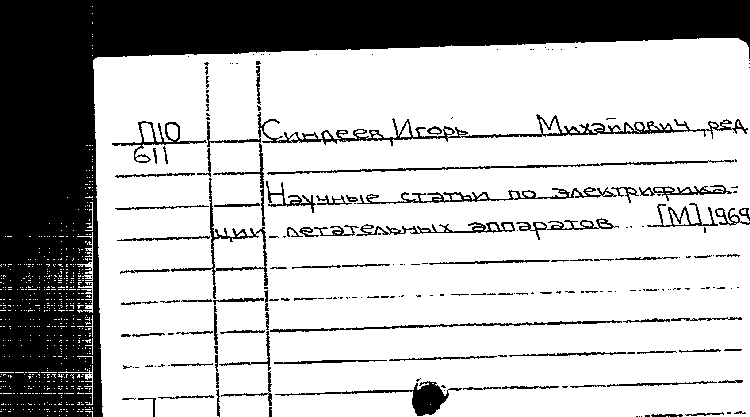 П10 Синдеев, Игорь Михайлович, ред
611
Научные статьи по электрифика-
ции летательных аппаратов [М], 1969